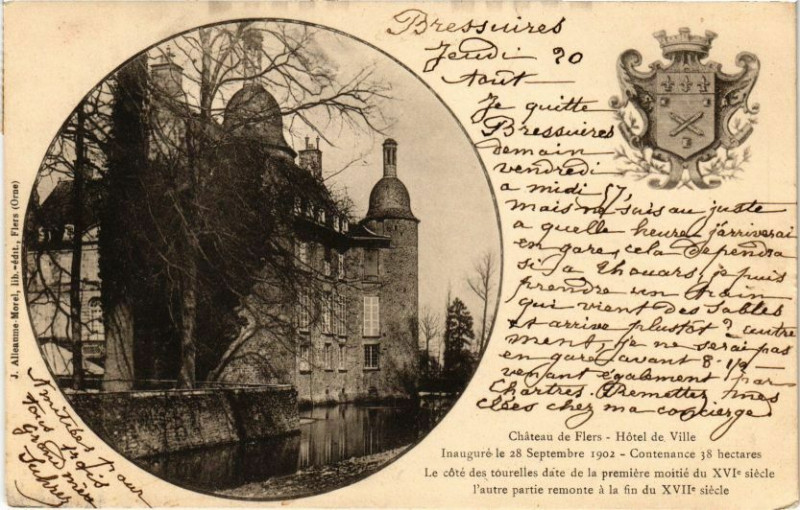 Bressuires
Jeudi 20
Aout
Je quitte
Bressuires
demain
vendredi
a midi 57
mais ne sais au juste
a quelle heure j'arriverai
en gare, cela dependra
si a Thouars, je puis
prendre un train
qui vient des Sables
et arrive plustot? autre
ment, je ne serai pas
en gare avant 8-19
venant également par
Chartres. Remettez mes
clées chez ma concierge
Amitiées pour
tous trois
Grand mère
J. Alleaume-Morel, lib.-édit., Flers (Orne)
Château de Flers - Hôtel de Ville
Inauguré le 28 Septembre 1902 - Contenance 38 hectares
Le côté des tourelles date de la première moitié du XVIe siècle
l'autre partie remonte à la fin du XVIIe siècle